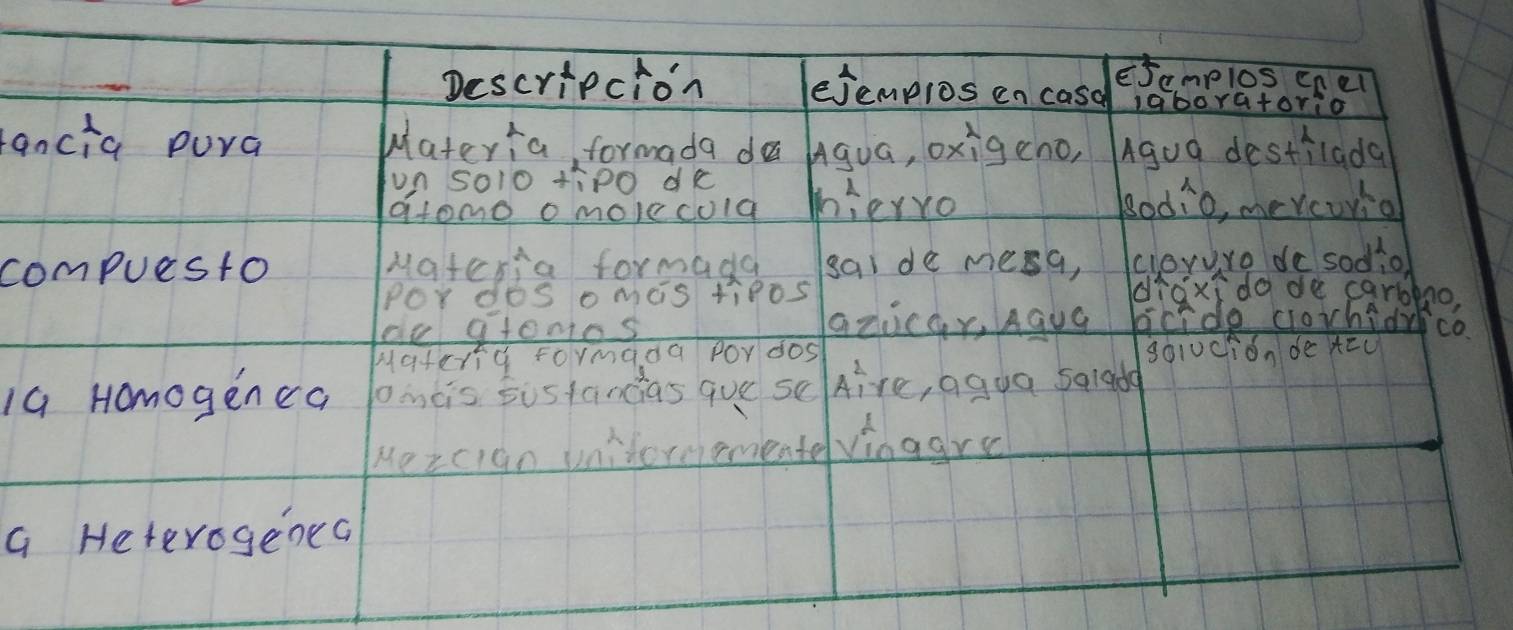 Descripción
ejemplos en casa
Ejemplos en el
laboratorio
tancia pura
Materia formada de
un solo tipo de
átomo o molecula
Agua, oxigeno,
hierro
Agua destilada
sodio, mercurio
compuesto
Materia formada
por dos o más tipos
de atomos
sal de mesa,
azúcar, Agua
cloruro de sodio,
dióxido de carbono,
ácido clorhidrico.
la Homogénea
Materia formada por dos
o más sustancias que se
Mezclan uniformemente
Aire, agua salada
Vinagre
solución de
a Heterogénea